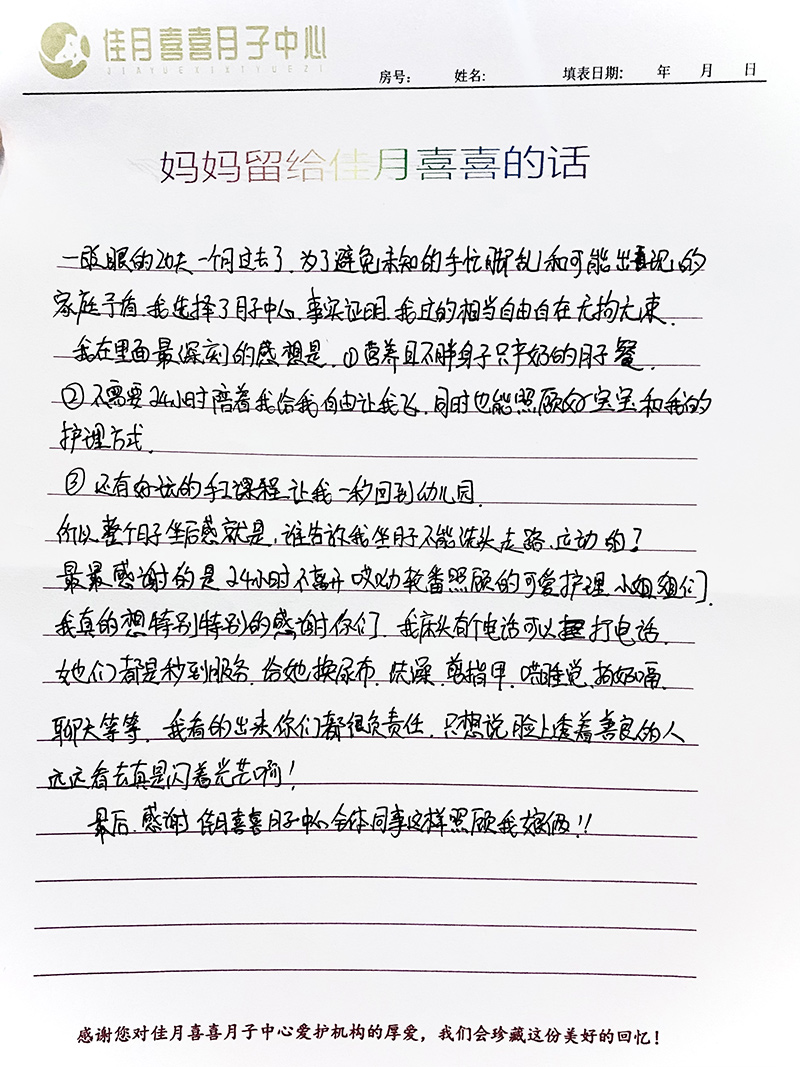 佳月喜喜月子中心
JIAYUEXIXIYUEZI
房号： 姓名: 填表日期: 年 月 日
妈妈留给佳月喜喜的话
一眨眼的功夫一个月过去了.为了避免未知的手忙脚乱和可能出现的
家庭矛盾.我选择了月子中心.事实证明.我过的相当自由自在无拘无束.
我在里面最深刻的感想是.①营养且不胖身子只产奶的月子餐.
②不需要24小时陪着我给我自由让我飞.同时也能照顾好宝宝和我的
护理方式.
③还有好玩的手工课程.让我一秒回到幼儿园.
所以整个月子坐后感就是.谁告诉我坐月子不能洗头走路.运动的?
最最感谢的是24小时不离开 轮番照顾的可爱护理小姐姐们.
我真的想特别特别的感谢你们.我床头有个电话可以打电话.
她们都是秒到服务.给她换尿布.洗澡.剪指甲.哄睡觉.拍奶嗝.
聊天等等.我看的出来你们都很负责任.只想说脸上透着善良的人
远远看去真是闪着光芒啊!
最后.感谢佳月喜喜月子中心全体同事这样照顾我娘俩!!
感谢您对佳月喜喜月子中心爱护机构的厚爱，我们会珍藏这份美好的回忆！